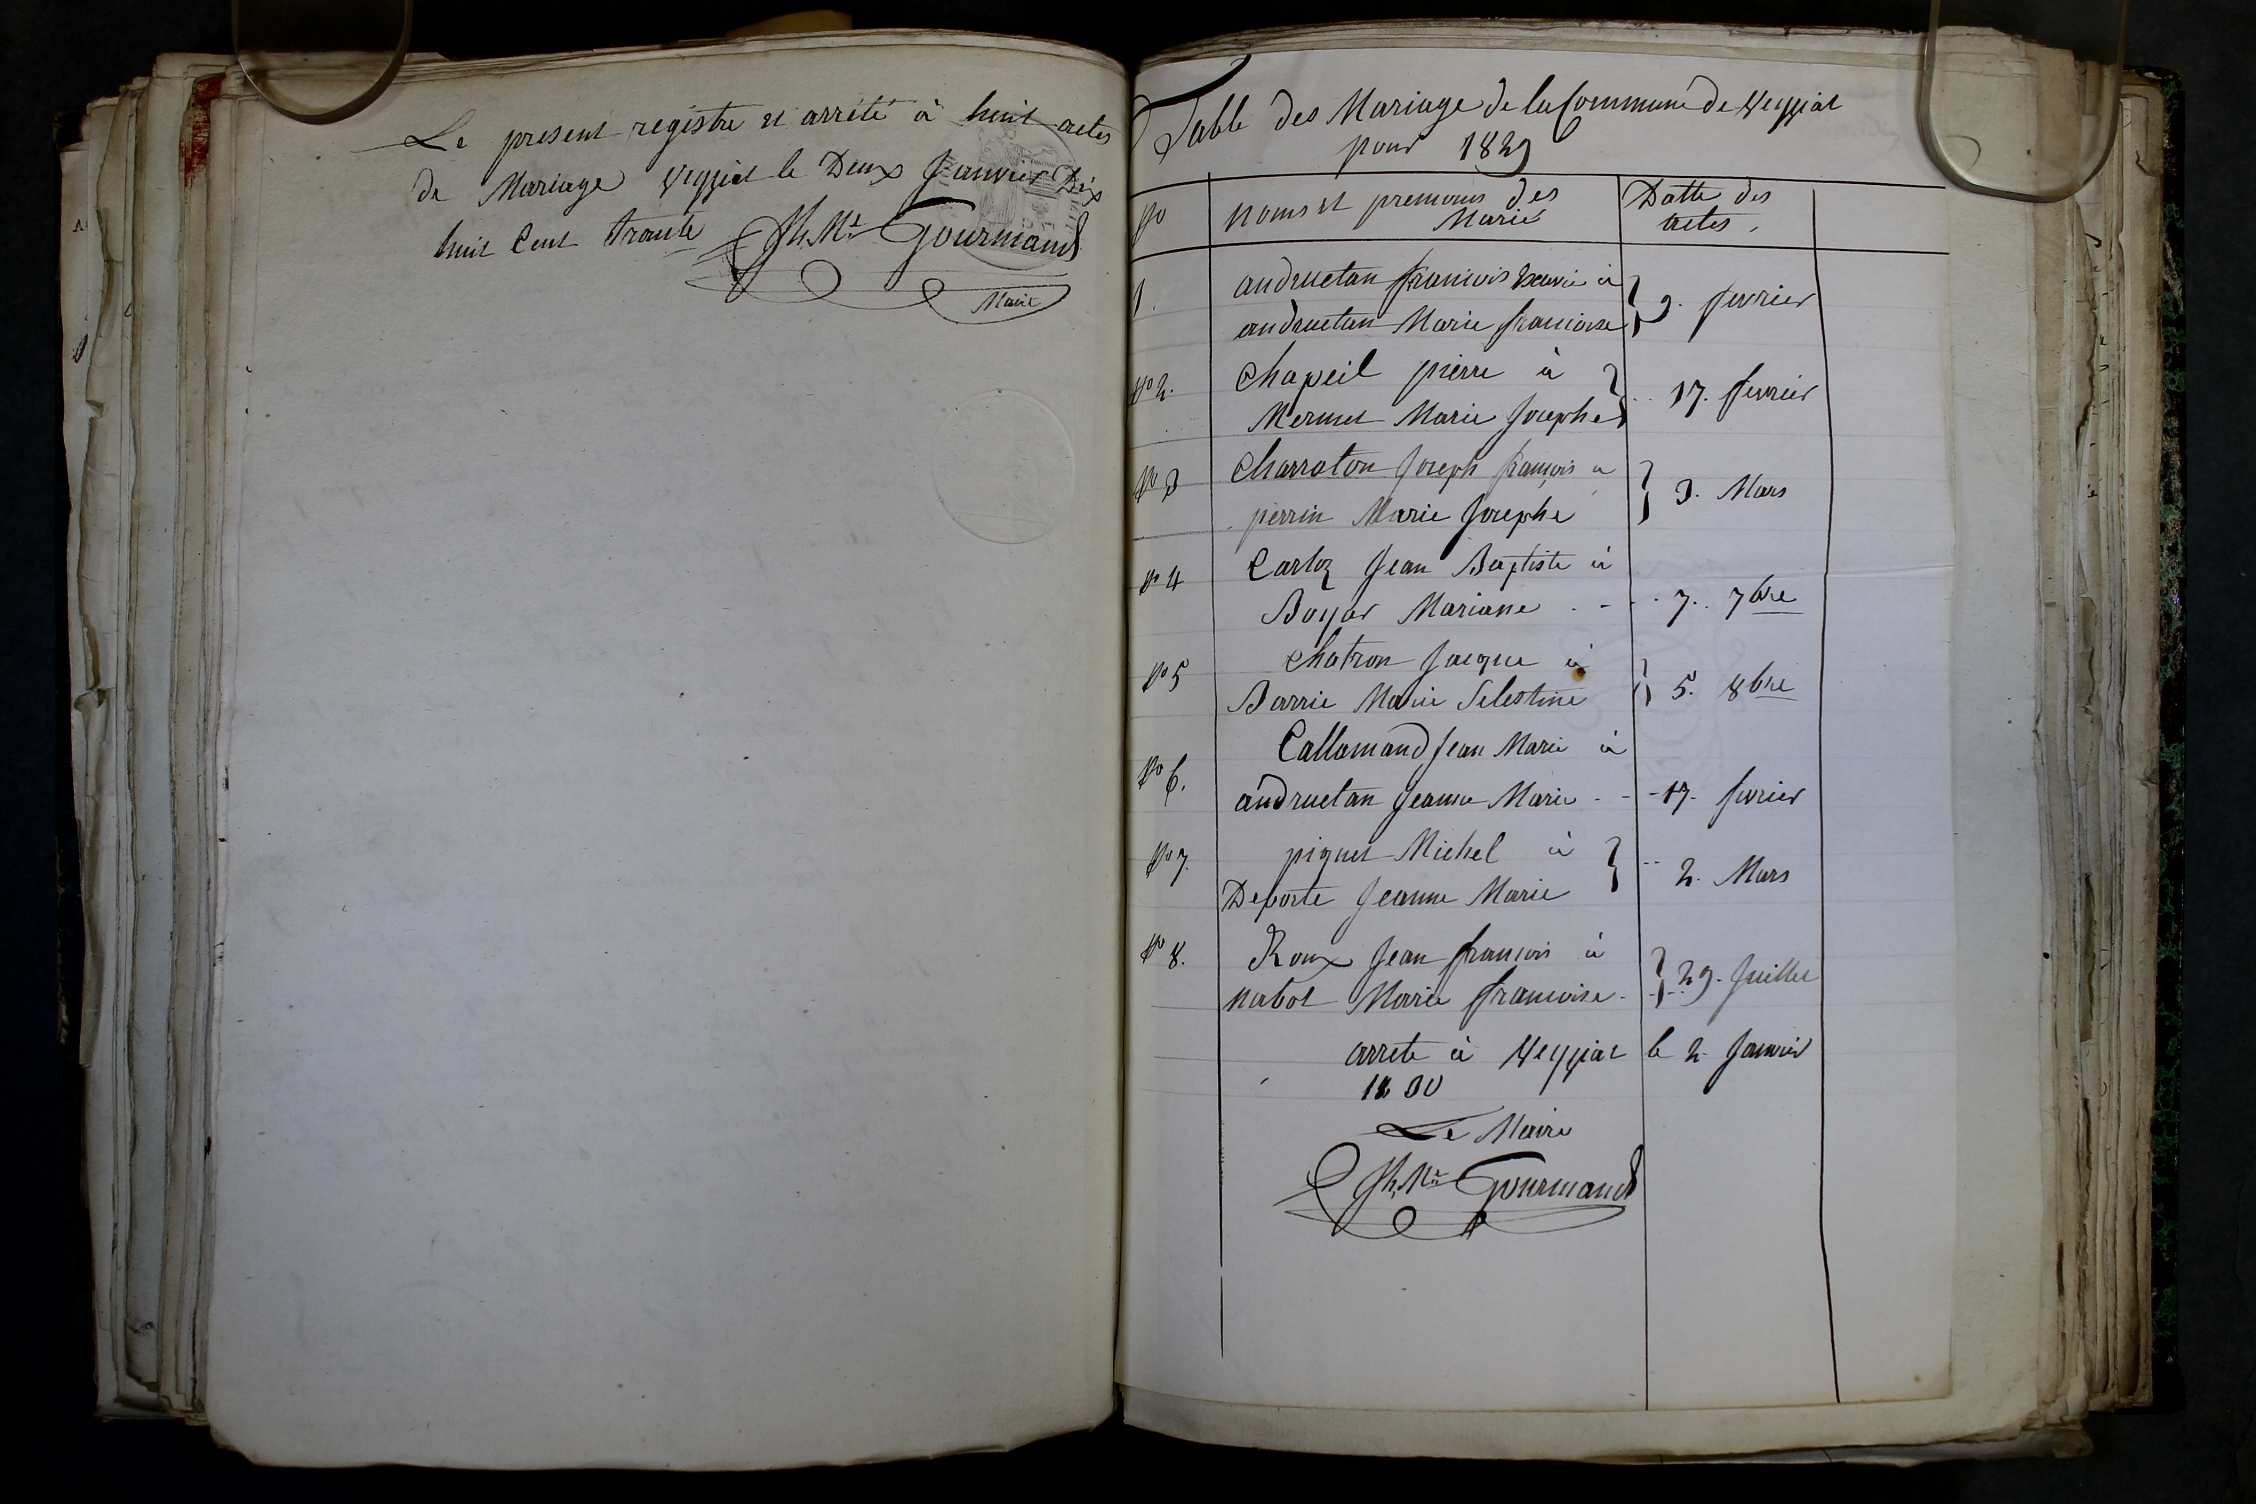 Le present registre est arrété à huit actes
de Mariage Veyziat le Deux Janvier Dix
huit Cent Trante Jh. Mie Gourmand
Maire
Table des Mariage de la Commune de Veyziat
pour 1829
No noms et prenoms des Marié Datte des actes
1. andruetan francois Xavié à
andruetan Marie francoise } 9. fevrier
No 2. Chapeil pierre à
Mermet Marie Josephe } 17. fevrier
No 3 Charraton Joseph françois a
perrin Marie Josephe } 3. Mars
No 4 Carloz Jean Baptiste à
Boyar Mariane - - - 7. 7bre
No 5 Chatron Jacque à
Barrie Marie Selestine } 5. 8bre
No 6. Callamand Jean Marie à
andruetan Jeanne Marie - - - 17. fevrier
No 7. piquet Michel à
Deporte Jeanne Marie } 2. Mars
No 8. Roux Jean francois à
nabot Marie francoise - } 29. Juillet
arrete à Veyziat le 2 Janvier
1830
Le Maire
Jh. Mie Gourmand